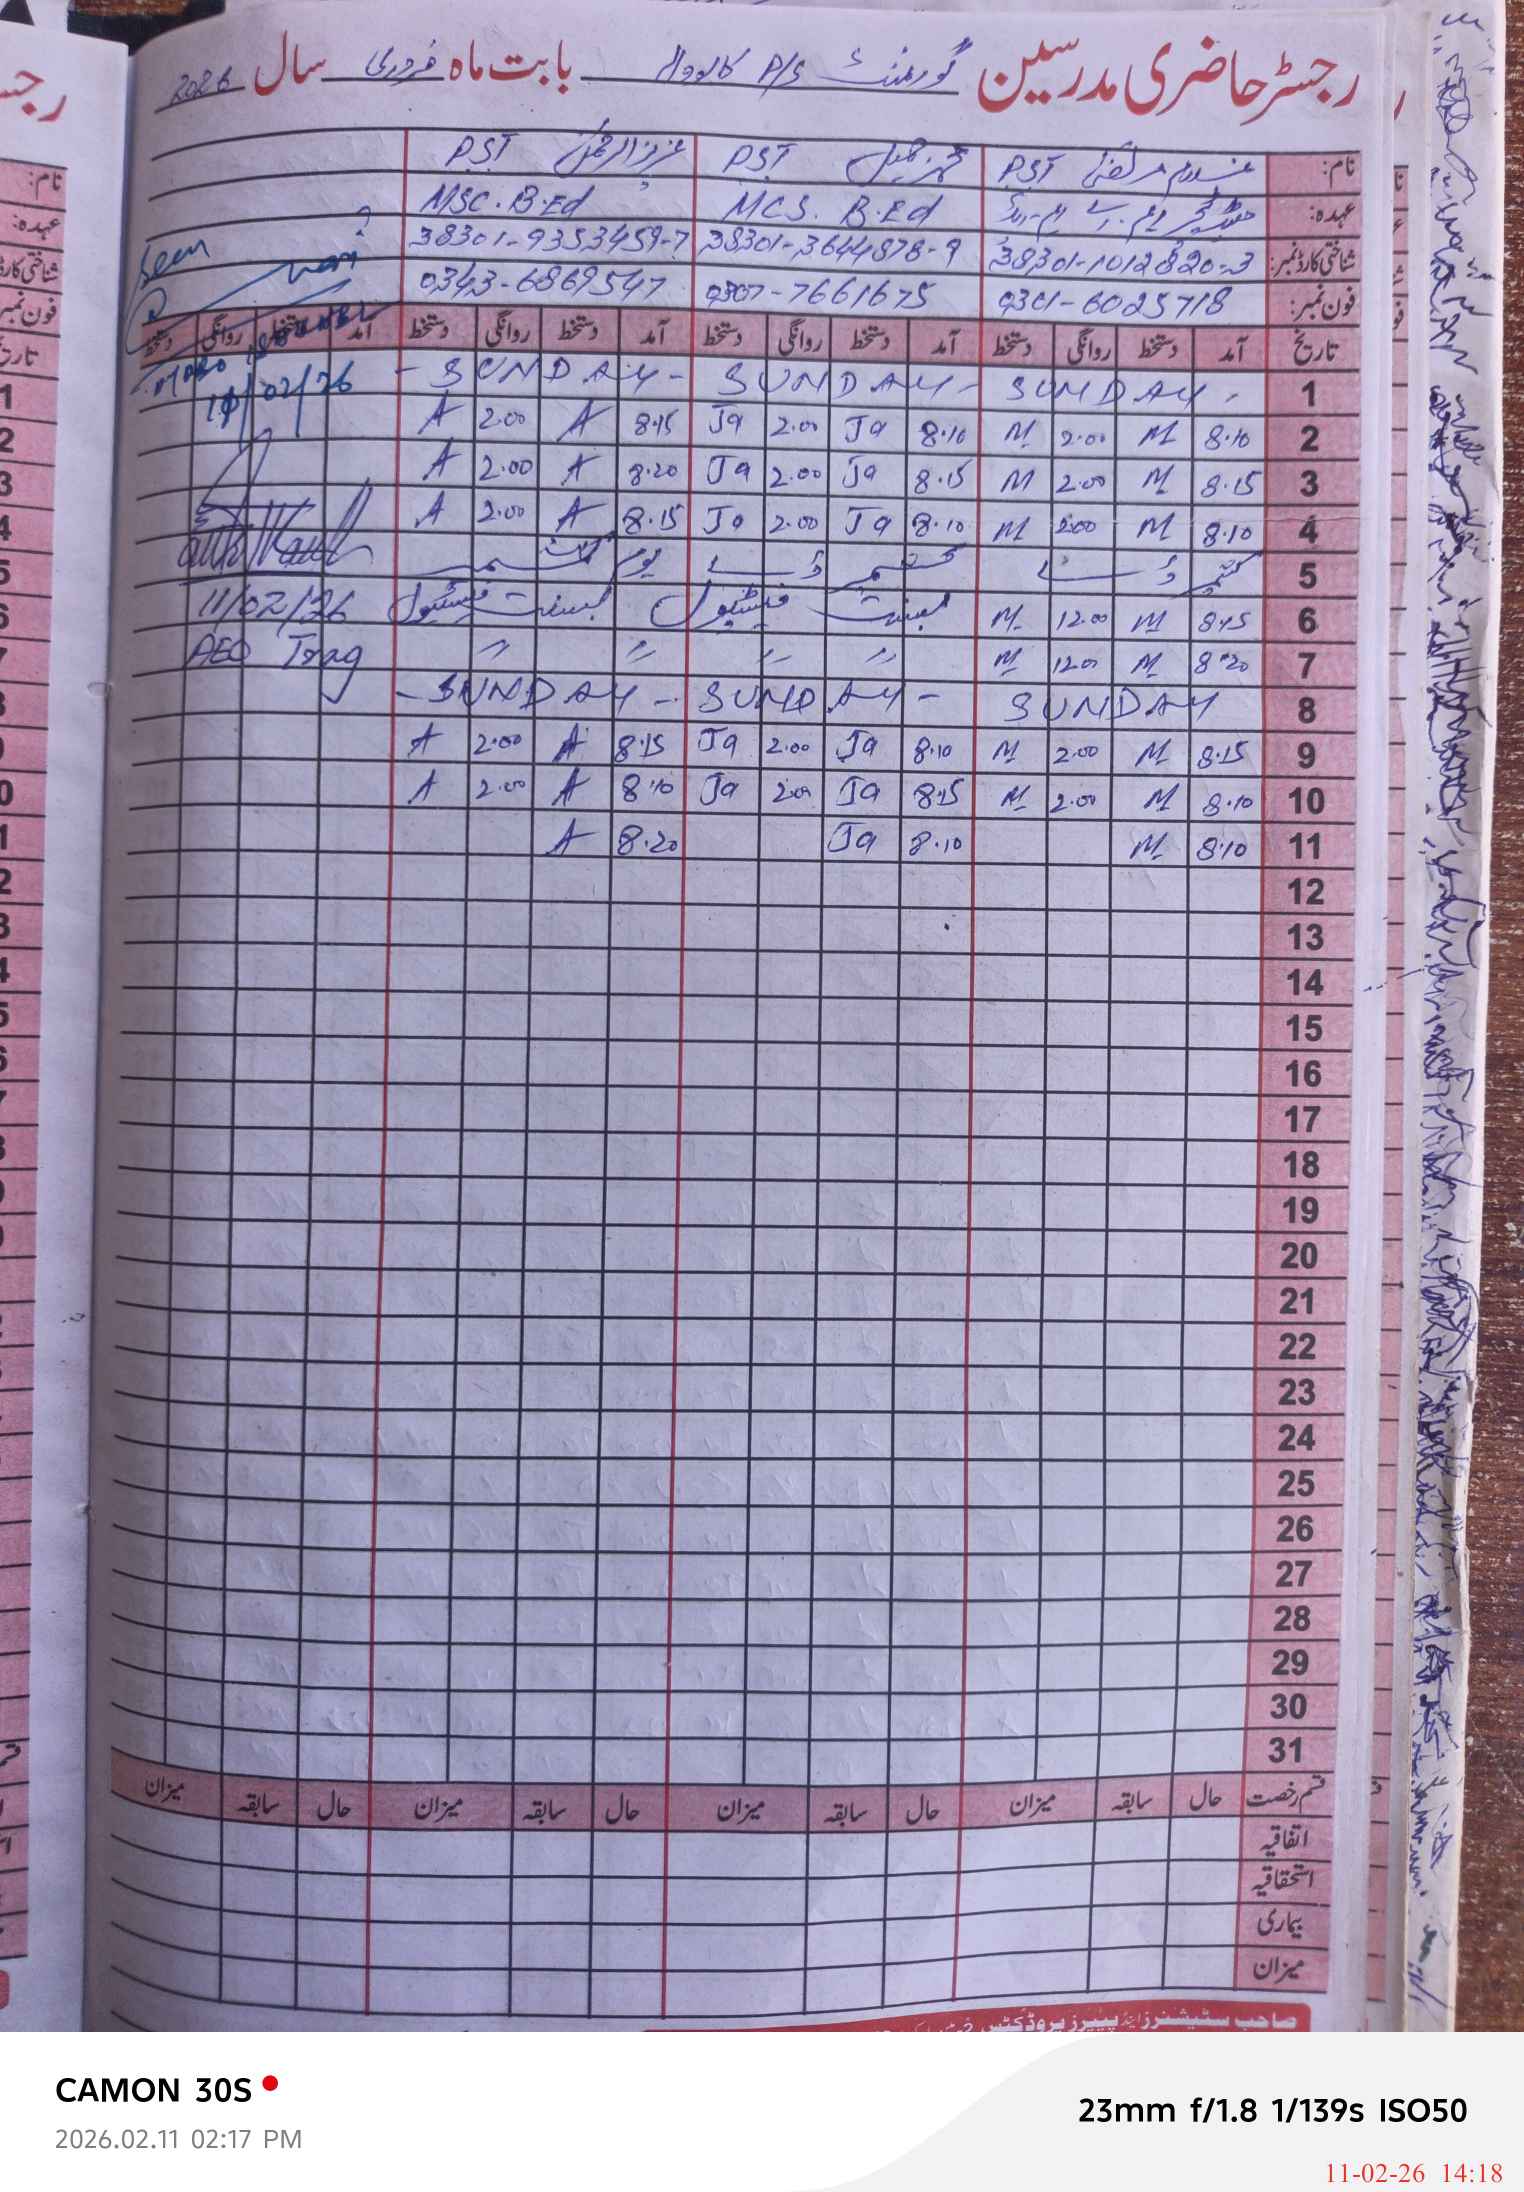 رجسٹر حاضری مدرسین گورنمنٹ P/S کالووال بابت ماہ فروری سال 2026
نام: غلام مرتضیٰ PST محمد جمیل PST عزیز الرحمن PST
عہدہ: ہیڈ ٹیچر ایم.اے ایم.ایڈ MCS. B.Ed MSC. B.Ed
شناختی کارڈ نمبر: 38301-1012820-3 38301-3644878-9 38301-9353459-7
فون نمبر: 0301-6025718 0307-7661675 0343-6869547
تاریخ آمد دستخط روانگی دستخط آمد دستخط روانگی دستخط آمد دستخط روانگی دستخط آمد دستخط روانگی دستخط
1 SUNDAY - SUNDAY - SUNDAY -
2 8.10 M 2.00 M 8.10 Ja 2.00 Ja 8.15 A 2.00 A
3 8.15 M 2.00 M 8.15 Ja 2.00 Ja 8.20 A 2.00 A
4 8.10 M 2.00 M 8.10 Ja 2.00 Ja 8.15 A 2.00 A
5 کشمیر ڈے کشمیر ڈے یوم کشمیر
6 8.15 M 12.00 M بسنت فیسٹیول بسنت فیسٹیول
7 8.20 M 12.00 M " " " "
8 SUNDAY SUNDAY - SUNDAY -
9 8.15 M 2.00 M 8.10 Ja 2.00 Ja 8.15 A 2.00 A
10 8.10 M 2.00 M 8.15 Ja 2.00 Ja 8.10 A 2.00 A
11 8.10 M 8.10 Ja 8.20 A
12
13
14
15
16
17
18
19
20
21
22
23
24
25
26
27
28
29
30
31
قسم رخصت حال سابقہ میزان حال سابقہ میزان حال سابقہ میزان حال سابقہ میزان
اتفاقیہ
استحقاقیہ
بیماری
میزان
Seen
10/02/26
11/02/26
AEO Trag
صاحب سٹیشنرز اینڈ پیپرز پروڈکٹس
CAMON 30S
2026.02.11 02:17 PM
23mm f/1.8 1/139s ISO50
11-02-26 14:18